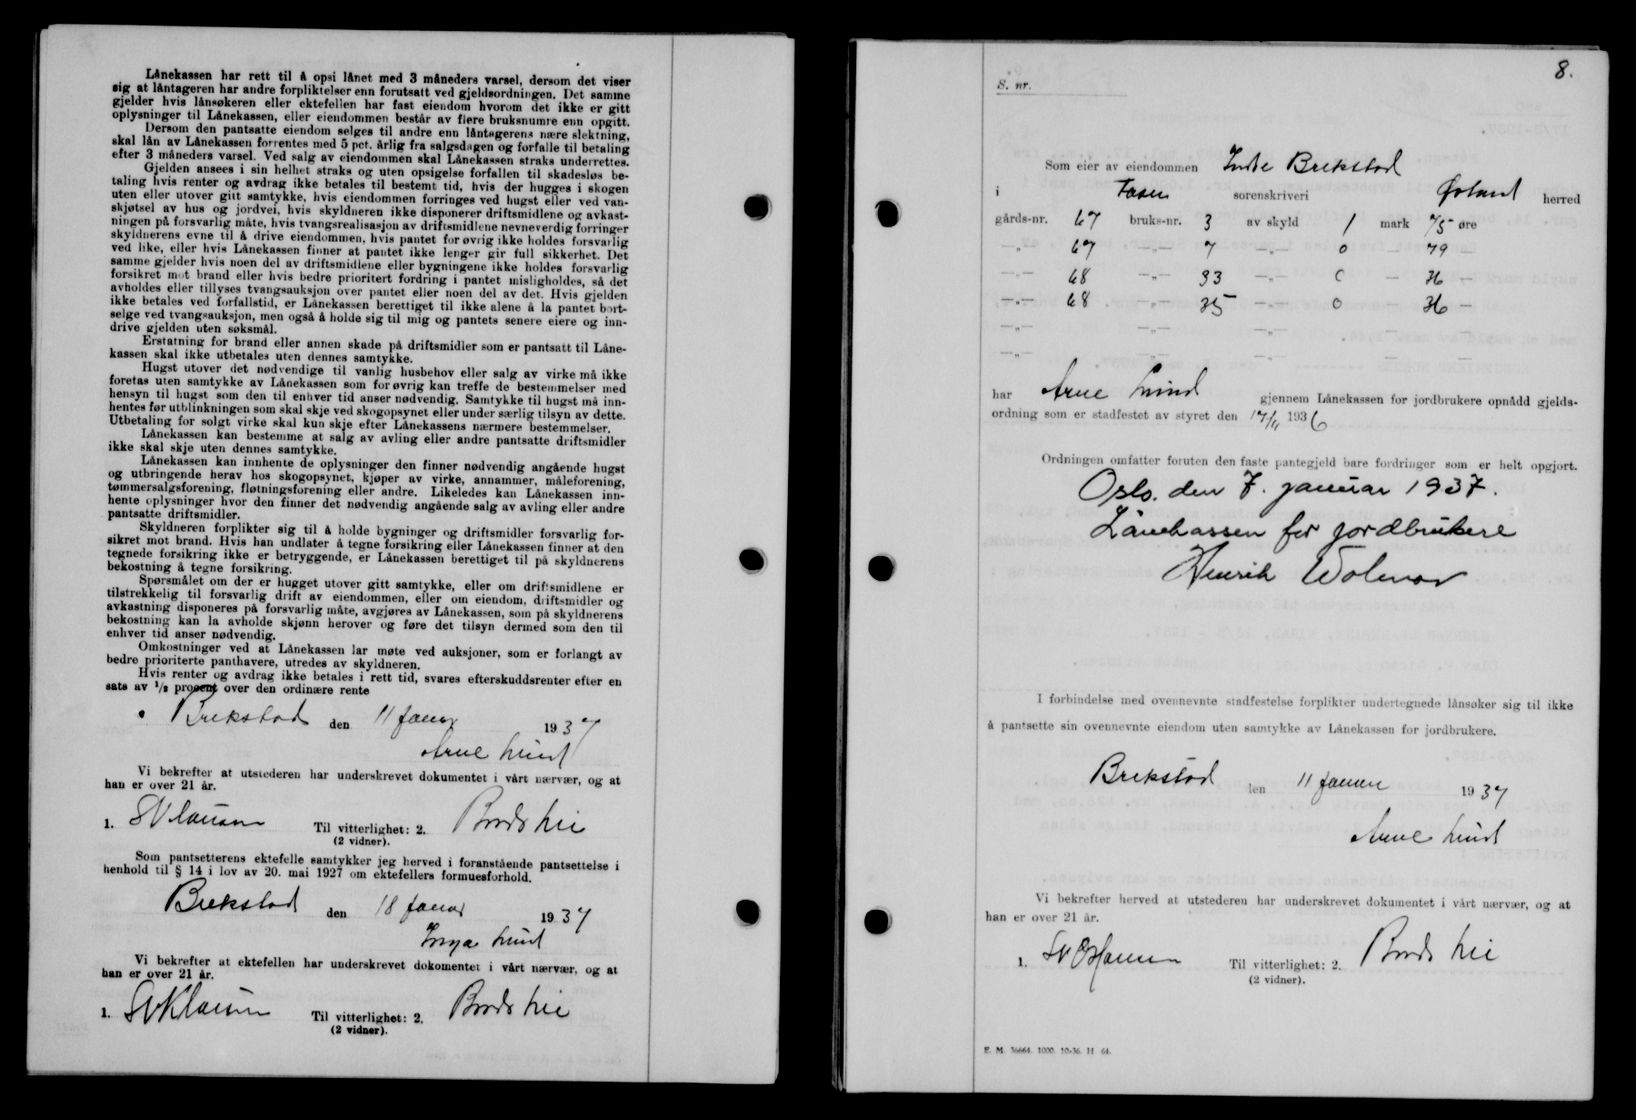 Lånekassen har rett til å opsi lånet med 3 måneders varsel, dersom det viser
sig at låntageren har andre forpliktelser enn forutsatt ved gjeldsordningen. Det samme
gjelder hvis lånsøkeren eller ektefellen har fast eiendom hvorom det ikke er gitt
oplysninger til Lånekassen, eller eiendommen består av flere bruksnumre enn opgitt.
Dersom den pantsatte eiendom selges til andre enn låntagerens nære slektning,
skal lån av Lånekassen forrentes med 5 pct. årlig fra salgsdagen og forfalle til betaling
efter 3 måneders varsel. Ved salg av eiendommen skal Lånekassen straks underrettes.
Gjelden ansees i sin helhet straks og uten opsigelse forfallen til skadesløs be-
taling hvis renter og avdrag ikke betales til bestemt tid, hvis der hugges i skogen
uten eller utover gitt samtykke, hvis eiendommen forringes ved hugst eller ved van-
skjøtsel av hus og jordvei, hvis skyldneren ikke disponerer driftsmidlene og avkast-
ningen på forsvarlig måte, hvis tvangsrealisasjon av driftsmidlene nevneverdig forringer
skyldnerens evne til å drive eiendommen, hvis pantet for øvrig ikke holdes forsvarlig
ved like, eller hvis Lånekassen finner at pantet ikke lenger gir full sikkerhet. Det
samme gjelder hvis noen del av driftsmidlene eller bygningene ikke holdes forsvarlig
forsikret mot brand eller hvis bedre prioritert fordring i pantet misligholdes, så det
avholdes eller tillyses tvangsauksjon over pantet eller noen del av det. Hvis gjelden
ikke betales ved forfallstid, er Lånekassen berettiget til ikke alene å la pantet bort-
selge ved tvangsauksjon, men også å holde sig til mig og pantets senere eiere og inn-
drive gjelden uten søksmål.
Erstatning for brand eller annen skade på driftsmidler som er pantsatt til Låne-
kassen skal ikke utbetales uten dennes samtykke.
Hugst utover det nødvendige til vanlig husbehov eller salg av virke må ikke
foretas uten samtykke av Lånekassen som for øvrig kan treffe de bestemmelser med
hensyn til hugst som den til enhver tid anser nødvendig. Samtykke til hugst må inn-
hentes før utblinkningen som skal skje ved skogopsynet eller under særlig tilsyn av dette.
Utbetaling for solgt virke skal kun skje efter Lånekassens nærmere bestemmelser.
Lånekassen kan bestemme at salg av avling eller andre pantsatte driftsmidler
ikke skal skje uten dennes samtykke.
Lånekassen kan innhente de oplysninger den finner nødvendig angående hugst
og utbringende herav hos skogopsynet, kjøper av virke, annammer, måleforening,
tømmersalgsforening, fløtningsforening eller andre. Likeledes kan Lånekassen inn-
hente oplysninger hvor den finner det nødvendig angående salg av avling eller andre
pantsatte driftsmidler.
Skyldneren forplikter sig til å holde bygninger og driftsmidler forsvarlig for-
sikret mot brand. Hvis han undlater å tegne forsikring eller Lånekassen finner at den
tegnede forsikring ikke er betryggende, er Lånekassen berettiget til på skyldnerens
bekostning å tegne forsikring.
Spørsmålet om der er hugget utover gitt samtykke, eller om driftsmidlene er
tilstrekkelig til forsvarlig drift av eiendommen, eller om eiendom, driftsmidler og
avkastning disponeres på forsvarlig måte, avgjøres av Lånekassen, som på skyldnerens
bekostning kan la avholde skjønn herover og føre det tilsyn dermed som den til
enhver tid anser nødvendig.
Omkostninger ved at Lånekassen lar møte ved auksjoner, som er forlangt av
bedre prioriterte panthavere, utredes av skyldneren.
Hvis renter og avdrag ikke betales i rett tid, svares efterskuddsrenter efter en
sats av 1/2 procent over den ordinære rente
Brekstad den 11 januar 1937
Arne Lund
Vi bekrefter at utstederen har underskrevet dokumentet i vårt nærvær, og at
han er over 21 år.
1. Til vitterlighet: 2.
(2 vidner).
Som pantsetterens ektefelle samtykker jeg herved i foranstående pantsettelse i
henhold til § 14 i lov av 20. mai 1927 om ektefellers formuesforhold.
Brekstad den 18 januar 1937
Inga Lund
Vi bekrefter at ektefellen har underskrevet dokomentet i vårt nærvær, og at
han er over 21 år.
1. Til vitterlighet: 2.
(2 vidner).
8.
S. nr.
Som eier av eiendommen Indre Brekstad
i Fosen sorenskriveri Ørland herred
gårds-nr. 67 bruks-nr. 3 av skyld 1 mark 75 øre
—„— 67 —„— 7 —„— 0 — 79 —
—„— 68 —„— 33 —„— 0 — 36 —
—„— 68 —„— 35 —„— 0 — 36 —
—„— —„— —„— — —
—„— —„— —„— — —
har Arne Lund gjennem Lånekassen for jordbrukere opnådd gjelds-
ordning som er stadfestet av styret den 17/11 1936
Ordningen omfatter foruten den faste pantegjeld bare fordringer som er helt opgjort.
Oslo. den 7. januar 1937.
Lånekassen for jordbrukere
Henrik Wolmar
I forbindelse med ovennevnte stadfestelse forplikter undertegnede lånsøker sig til ikke
å pantsette sin ovennevnte eiendom uten samtykke av Lånekassen for jordbrukere.
Brekstad den 11 januar 1937
Arne Lund
Vi bekrefter herved at utstederen har underskrevet dokumentet i vårt nærvær, og at
han er over 21 år.
1. Til vitterlighet: 2.
(2 vidner).
E. M. 36664. 1000. 10-36. H 64.